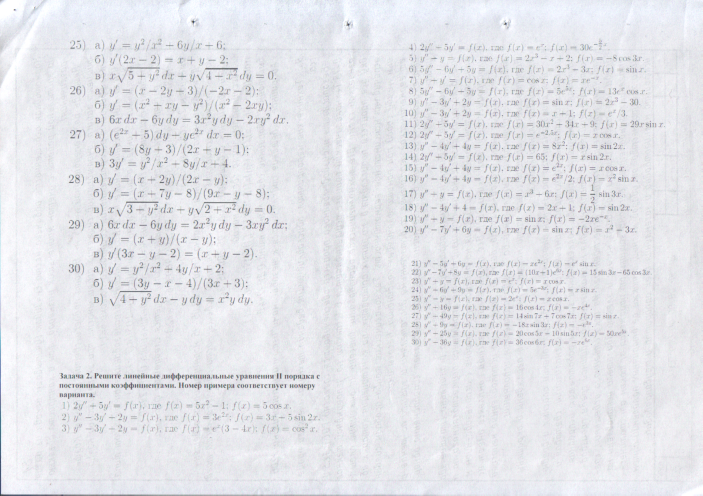 25) а) y′ = y²/x² + 6y/x + 6;
б) y′(2x − 2) = x + y − 2;
в) x√(5 + y²) dx + y√(4 + x²) dy = 0.
26) а) y′ = (x − 2y + 3)/(−2x − 2);
б) y′ = (x² + xy − y²)/(x² − 2xy);
в) 6x dx − 6y dy = 3x²y dy − 2xy² dx.
27) а) (e²ˣ + 5) dy + ye²ˣ dx = 0;
б) y′ = (8y + 3)/(2x + y − 1);
в) 3y′ = y²/x² + 8y/x + 4.
28) а) y′ = (x + 2y)/(2x − y);
б) y′ = (x + 7y − 8)/(9x − y − 8);
в) x√(3 + y²) dx + y√(2 + x²) dy = 0.
29) а) 6x dx − 6y dy = 2x²y dy − 3xy² dx;
б) y′ = (x + y)/(x − y);
в) y′(3x − y − 2) = (x + y − 2).
30) а) y′ = y²/x² + 4y/x + 2;
б) y′ = (3y − x − 4)/(3x + 3);
в) √(4 + y²) dx − y dy = x²y dy.
Задача 2. Решите линейные дифференциальные уравнения II порядка с
постоянными коэффициентами. Номер примера соответствует номеру
варианта.
1) 2y″ + 5y′ = f(x), где f(x) = 5x² − 1; f(x) = 5 cos x.
2) y″ − 3y′ + 2y = f(x), где f(x) = 3e²ˣ; f(x) = 3x − 5 sin 2x.
3) y″ − 3y′ + 2y = f(x), где f(x) = eˣ(3 − 4x); f(x) = cos² x.
4) 2y″ − 5y′ = f(x), где f(x) = eˣ; f(x) =
5) y″ + y = f(x), где f(x) = 2x³ − x + 2; f(x) = −8 cos 3x
6) 5y″ − 6y′ + 5y = f(x), где f(x) = 2x³ − 3x; f(x) = sin x.
7) y″ − y′ = f(x), где f(x) = cos x; f(x) =
8) 5y″ − 6y′ + 5y = f(x), где f(x) = f(x) = 13eˣ cos x.
9) y″ − 3y′ + 2y = f(x), где f(x) = sin x; f(x) = 2x³ − 30.
10) y″ − 3y′ + 2y = f(x), где f(x) = x − 1; f(x) = eˣ/3.
11) 2y″ + 5y′ = f(x), где f(x) = 30x² + 34x + 9; f(x) = 29x sin x.
12) 2y″ − 5y′ = f(x), где f(x) = f(x) = x cos x.
13) y″ − 4y′ + 4y = f(x), где f(x) = 8x²; f(x) = sin 2x.
14) 2y″ + 5y′ = f(x), где f(x) = 65; f(x) = x sin 2x.
15) y″ − 4y′ + 4y = f(x), где f(x) = e²ˣ; f(x) = x cos x.
16) y″ − 4y′ + 4y = f(x), где f(x) = e²ˣ/2; f(x) = x² sin x.
17) y″ + y = f(x), где f(x) = x³ − 6x; f(x) = 1/2 sin 3x.
18) y″ − 4y′ + 4 = f(x), где f(x) = 2x + 1; f(x) = sin 2x.
19) y″ + y = f(x), где f(x) = sin x; f(x) =
20) y″ − 7y′ + 6y = f(x), где f(x) = sin x; f(x) = x² + 3x.
21) y″ − 5y′ + 6y = f(x), где f(x) = f(x) = eˣ sin x.
22) y″ − 7y′ + 8y = f(x), где f(x) = f(x) = 15 sin 3x − 65 cos 3x
23) y″ − y = f(x), где f(x) = eˣ; f(x) = x cos x.
24) y″ − 6y′ + 9y = f(x), где f(x) = f(x) = x sin x.
25) y″ − y = f(x), где f(x) = 2eˣ; f(x) = x cos x.
26) y″ − 16y = f(x), где f(x) = 16 cos 4x; f(x) =
27) y″ − 49y = f(x), где f(x) = 14 sin 7x + 7 cos 7x; f(x) = sin x.
28) y″ − 9y = f(x), где f(x) = −18x sin 3x; f(x) =
29) y″ − 25y = f(x), где f(x) = 20 cos 5x − 10 sin 5x; f(x) =
30) y″ − 36y = f(x), где f(x) = 36 cos 6x; f(x) =